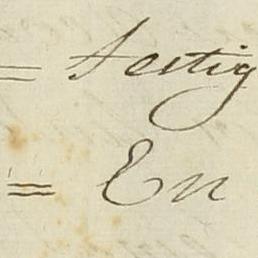 = sertig
= En